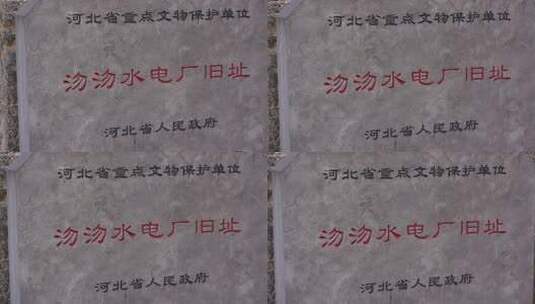 河北省重点文物保护单位
沕沕水电厂旧址
河北省人民政府
河北省重点文物保护单位
沕沕水电厂旧址
河北省人民政府
河北省重点文物保护单位
沕沕水电厂旧址
河北省人民政府
河北省重点文物保护单位
沕沕水电厂旧址
河北省人民政府